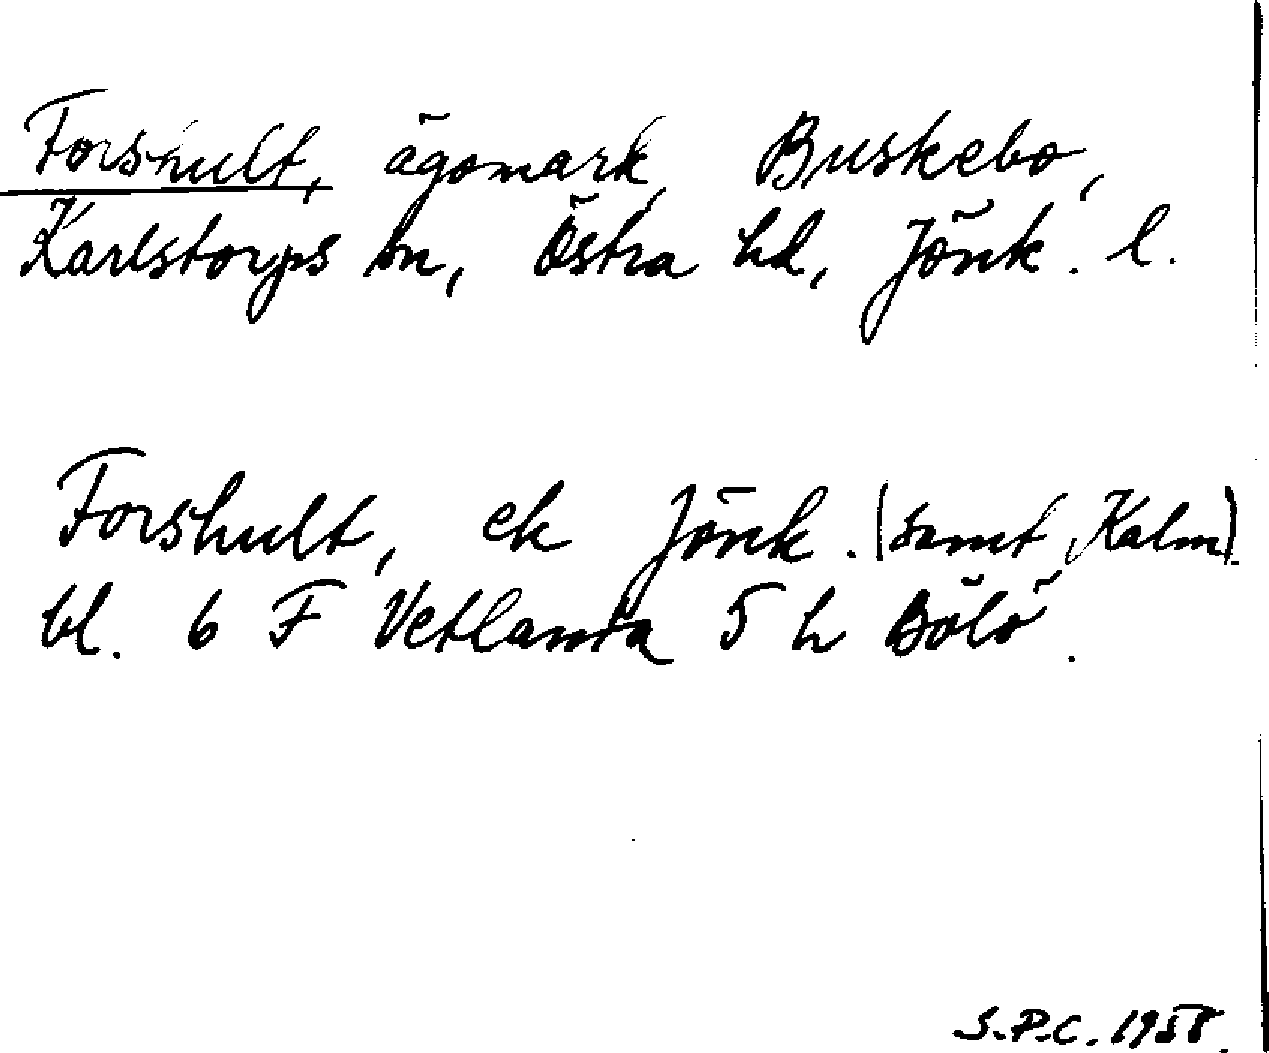 Forshult, ägomark, Buskebo,
Karlstorps sn, Östra hd, Jönk. l.
Forshult, ek Jönk. (samt Kalm)
bl. 6 F Vetlanda 5 h Bölö.
S.P.C. 1958.